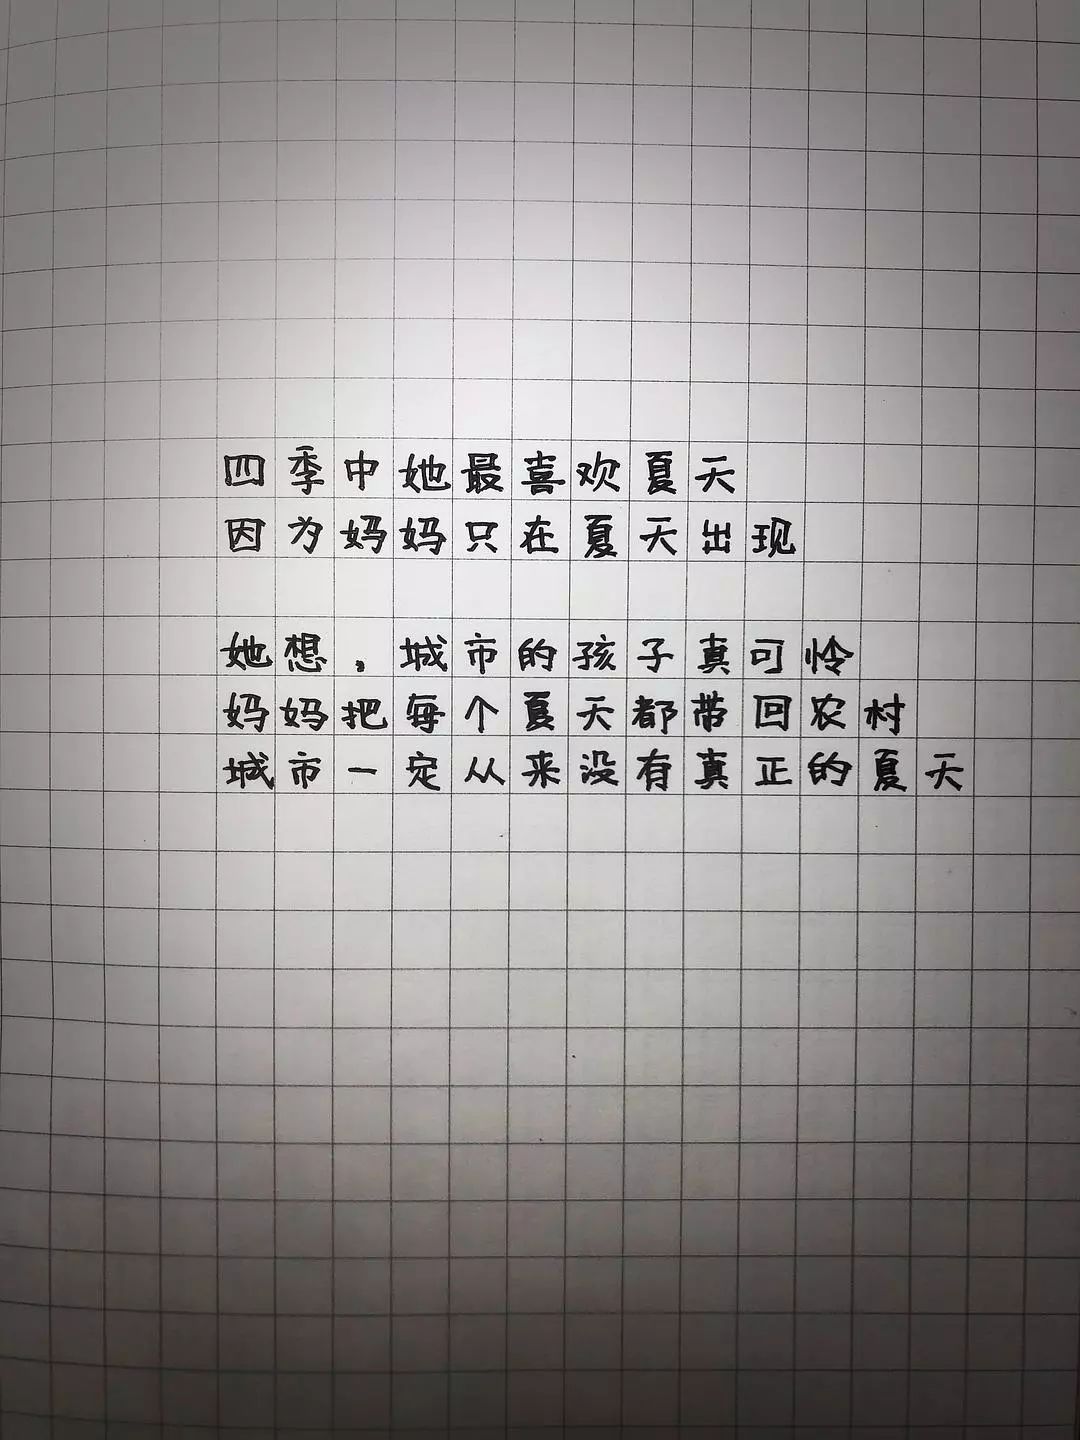 四季中她最喜欢夏天
因为妈妈只在夏天出现
她想，城市的孩子真可怜
妈妈把每个夏天都带回农村
城市一定从来没有真正的夏天